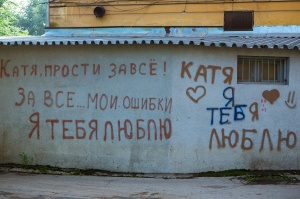 КАТЯ, ПРОСТИ ЗА ВСЁ!
ЗА ВСЕ... МОИ ОШИБКИ
Я ТЕБЯ ЛЮБЛЮ
КАТЯ
Я
ТЕБЯ
ЛЮБЛЮ